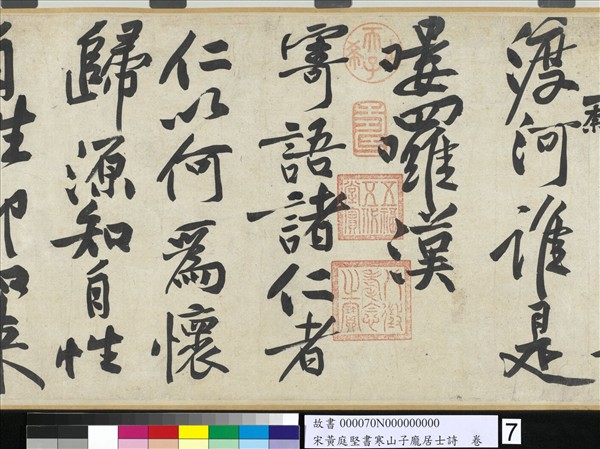 渡河誰是
嘍囉漢
寄語諸仁者
仁以何爲懷
歸源知自性
自性即如來
八徵耄念之寶
故書 000070N000000000
宋黃庭堅書寒山子龐居士詩 卷
7